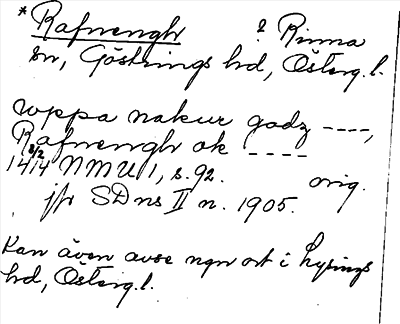 * Rafnengh ? Rinna
sn, Göstrings hd, Österg.l.
uppa nakur godz ----,
Rafnengh ok ----
14 8/2 14 NMU 1, s. 92. orig.
jfr SD ns II n. 1905.
Kan även avse ngn ort i Lysings
hd, Österg.l.